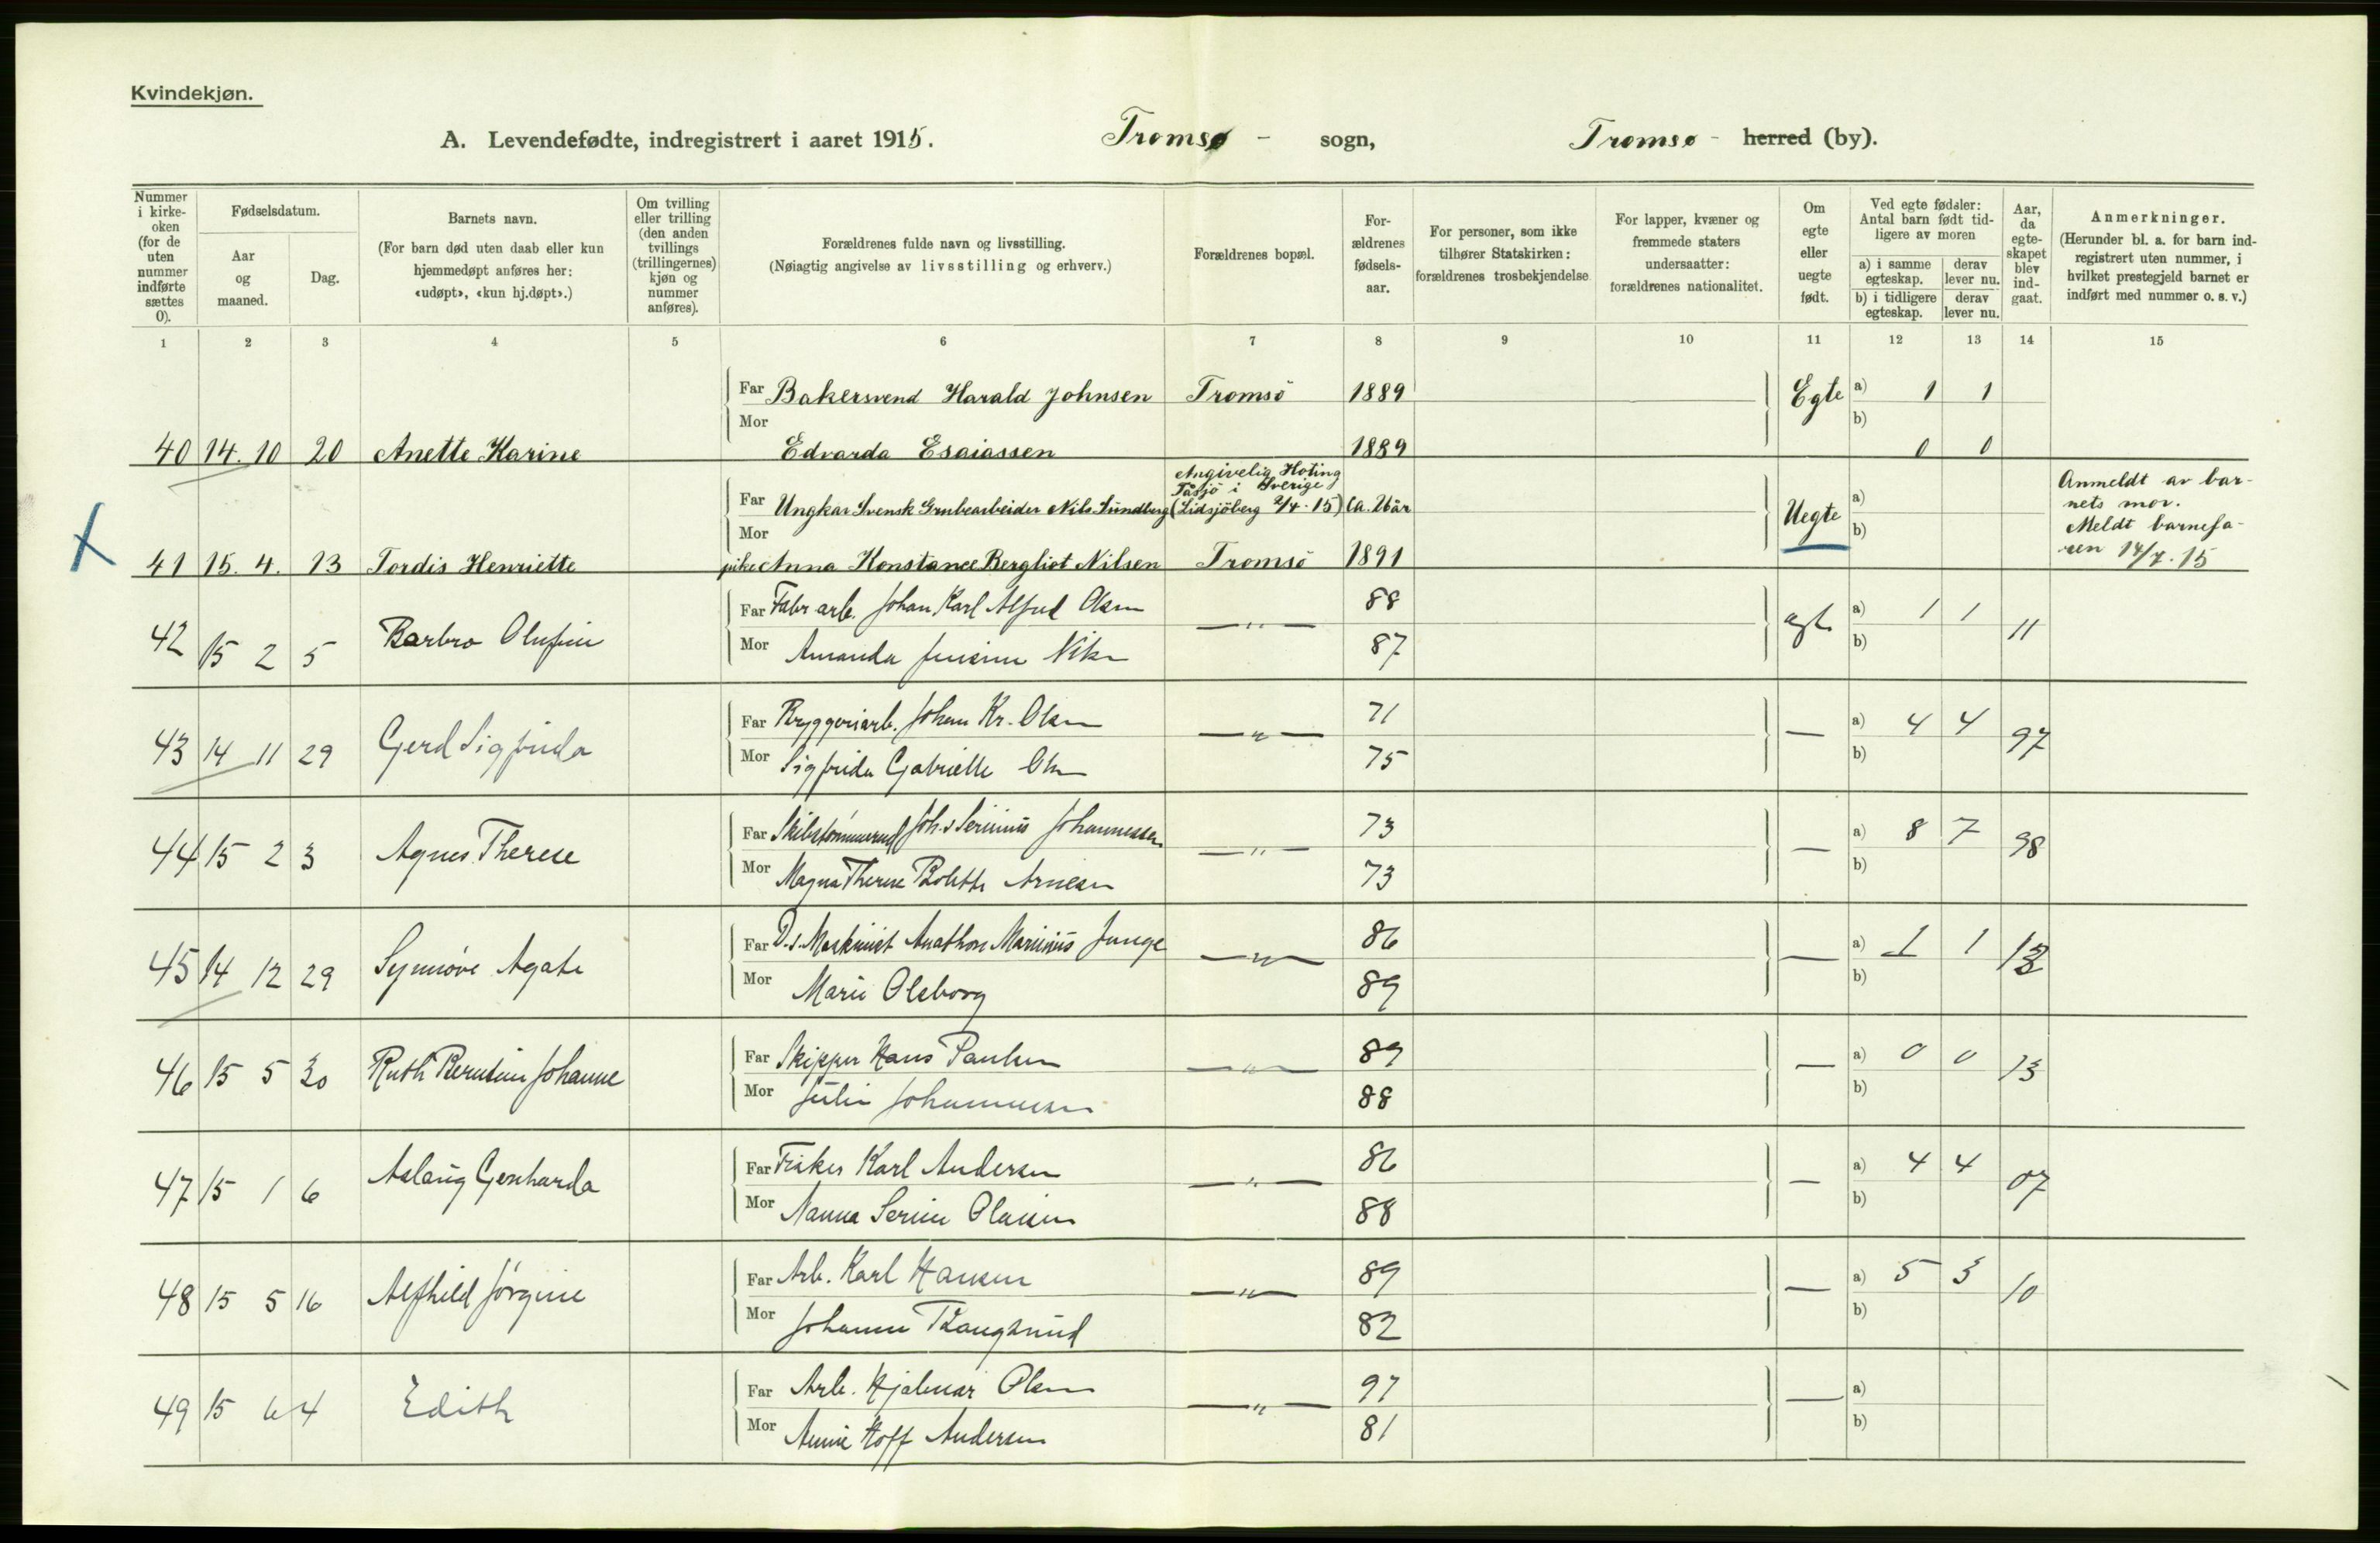 Kvindekjøn.
A. Levendefødte, indregistrert i aaret 1915. Tromsø - sogn, Tromsø - herred (by).
Nummer i kirke-oken (for de uten nummer indførte sættes 0).
Fødselsdatum.
Aar og maaned.
Dag.
Barnets navn.
(For barn død uten daab eller kun hjemmedøpt anføres her: «udøpt», «kun hj.døpt».)
Om tvilling eller trilling (den anden tvillings (trillingernes) kjøn og nummer anføres).
Forældrenes fulde navn og livsstilling.
(Nøiagtig angivelse av livsstilling og erhverv.)
Forældrenes bopæl.
For-ældrenes fødsels-aar.
For personer, som ikke tilhører Statskirken: forældrenes trosbekjendelse.
For lapper, kvæner og fremmede staters undersaatter: forældrenes nationalitet.
Om egte eller uegte født.
Ved egte fødsler: Antal barn født tid-ligere av moren
a) i samme egteskap.
derav lever nu.
b) i tidligere egteskap.
derav lever nu.
Aar, da egte-skapet blev ind-gaat.
Anmerkninger.
(Herunder bl. a. for barn ind-registrert uten nummer, i hvilket prestegjeld barnet er indført med nummer o. s. v.)
1 2 3 4 5 6 7 8 9 10 11 12 13 14 15
Far Bakersvend Harald Johnsen Tromsö 1889 Egte a) 1 1
40 14. 10 20 Anette Karine Mor Edvarda Esaiassen 1889 b) 0 0
Angivelig Hoting
Tåsjö i Sverige
Far Ungkar Svensk Grubearbeider Nils Sundberg (Lidsjöberg 2/4 . 15) Ca. 26 år Uegte a)
41 15. 4. 13 Tordis Henriette Mor pike Anna Konstance Bergliot Nilsen Tromsö 1891 b)
Anmeldt av bar-
nets mor.
Meldt barnefa-
ren 14/7 . 15
Far Fabr arb. Johan Karl Alfred Olsen 88
42 15 2 5 Barbro Olufine — " — egte a) 1 1 b) 11
Mor Amanda 87
Far Bryggeriarb. Johan Kr. Olsen 71
43 14 11 29 Gerd Sigfrida — " — — a) 4 4 b) 97
Mor Sigfrida Gabrielle Olsen 75
Far Skibstømmermd Joh. Severinus Johannessen 73
44 15 2 3 Agnes Therese — " — — a) 8 7 b) 98
Mor Magna Therese Bolette Arnesen 73
Far D.s. Maskinist Anathon Marinius Junge 86
45 14 12 29 Synnöve Agate — " — — a) 1 1 b) 13
Mor Marie Olsborg 89
Far Skipper Hans Paulsen 89
46 15 5 30 Ruth Berntine Johanne — " — — a) 0 0 b) 13
Mor Julie Johannessen 88
Far Fisker Karl Andersen 86
47 15 1 6 Aslaug Gerharda — " — — a) 4 4 b) 07
Mor Nanna Serine Olaisen 88
Far Arb. Karl Hansen 89
48 15 5 16 Alfhild Jørgine — " — — a) 5 3 b) 10
Mor Johanne 82
Far Arb. Hjalmar Olsen 97
49 15 6 4 Edith — " — — a) b)
Mor Annie Hoff Andersen 81